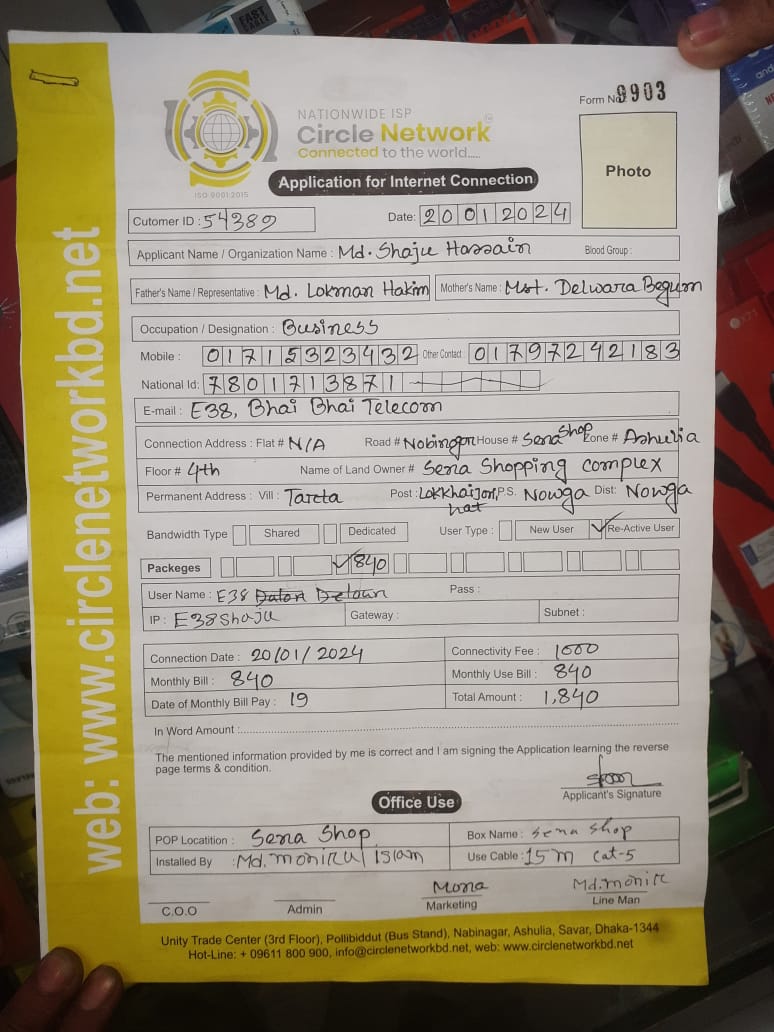 Form No. 9903
NATIONWIDE ISP
Circle Network
Connected to the world.....
ISO 9001:2015
Application for Internet Connection
Photo
Cutomer ID : 54389 Date: 20012024
Applicant Name / Organization Name : Md. Shaju Hossain Blood Group :
Father's Name / Representative : Md. Lokman Hakim Mother's Name : Mst. Delwara Begum
Occupation / Designation : Business
Mobile : 01715323432 Other Contact : 01797242183
National Id: 7801713871
E-mail : E38, Bhai Bhai Telecom
Connection Address : Flat # N/A Road # Nobinagor House # Sena Shop Zone # Ashulia
Floor # 4th Name of Land Owner # Sena Shopping complex
Permanent Address : Vill : Tareta Post : Lokkhaijori, hat P.S. Nowga Dist: Nowga
Bandwidth Type Shared Dedicated User Type : New User ✓ Re-Active User
Packeges ✓ 840
User Name : E38 Pass :
IP : E38Shaju Gateway : Subnet :
Connection Date : 20/01/2024 Connectivity Fee : 1000
Monthly Bill : 840 Monthly Use Bill : 840
Date of Monthly Bill Pay : 19 Total Amount : 1,840
In Word Amount :
The mentioned information provided by me is correct and I am signing the Application learning the reverse
page terms & condition.
Applicant's Signature
Office Use
POP Locatition : Sena Shop Box Name : Sena Shop
Installed By : Md. Monirul Islam Use Cable : 15m cat-5
Mona Md. Monir
C.O.O Admin Marketing Line Man
Unity Trade Center (3rd Floor), Pollibiddut (Bus Stand), Nabinagar, Ashulia, Savar, Dhaka-1344
Hot-Line: + 09611 800 900, info@circlenetworkbd.net, web: www.circlenetworkbd.net
web: www.circlenetworkbd.net